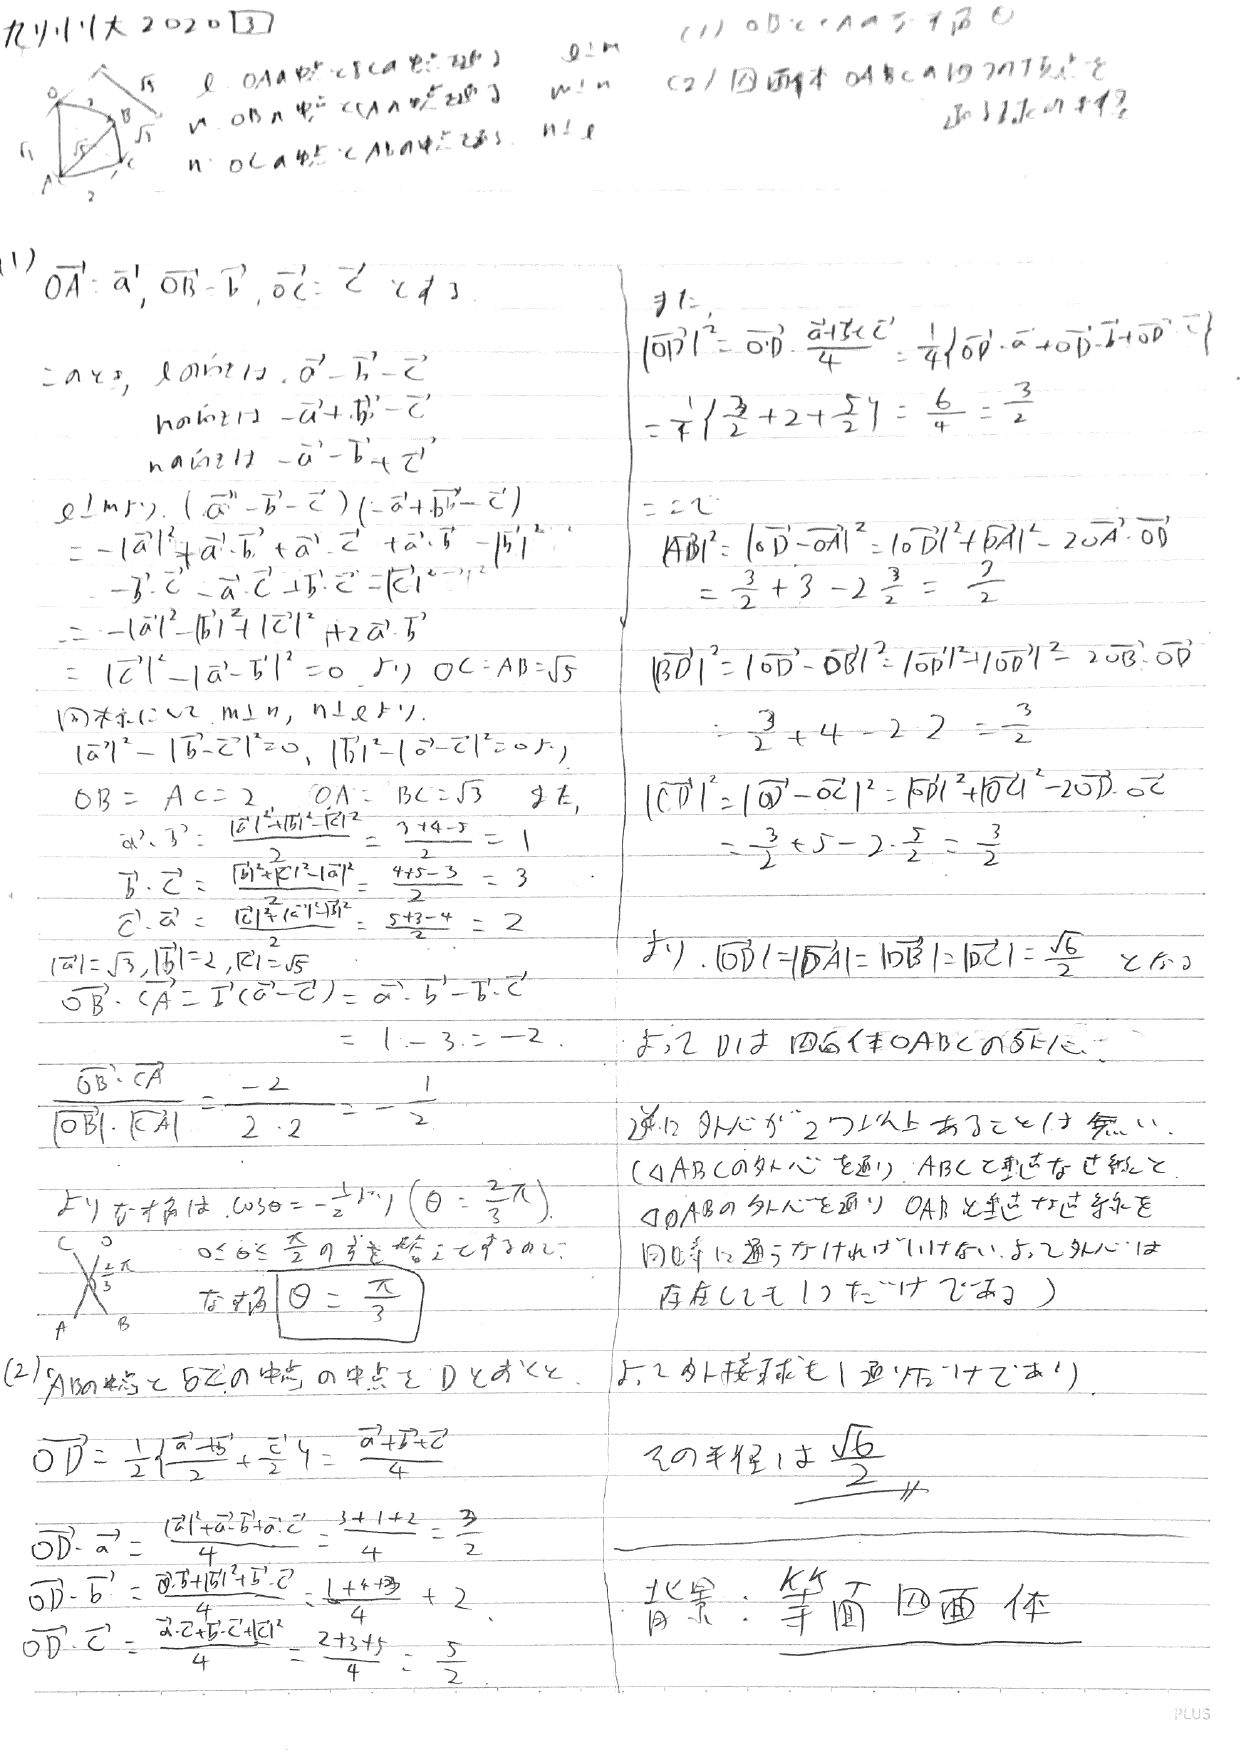 九州大 2020 [3]
(1) OBとCAのなす角θ
(2) 四面体OABCの4つの頂点を
通る球の半径
l OAの中点とBCの中点を通る l⊥m
m OBの中点とCAの中点を通る m⊥n
n OCの中点とABの中点を通る n⊥l
O √5
B
√3 √5 √3
A C
2
(1)
OA→ = a→, OB→ = b→, OC→ = c→ とする
このとき, lの方向は a→ - b→ - c→
mの方向は -a→ + b→ - c→
nの方向は -a→ - b→ + c→
l⊥mより. (a→ - b→ - c→)(-a→ + b→ - c→)
= -|a→|² + a→·b→ + a→·c→ + a→·b→ - |b→|²
-b→·c→ - a→·c→ + b→·c→ = |c→|²
= -|a→|² - |b→|² + |c→|² + 2a→·b→
= |c→|² - |a→ - b→|² = 0 より OC = AB = √5
同様にして m⊥n, n⊥lより.
|a→|² - |b→ - c→|² = 0, |b→|² - |a→ - c→|² = 0より
OB = AC = 2, OA = BC = √3 また,
a→·b→ = (|a→|² + |b→|² - |c→|²)/2 = (3+4-5)/2 = 1
b→·c→ = (|b→|² + |c→|² - |a→|²)/2 = (4+5-3)/2 = 3
c→·a→ = (|c→|² + |a→|² - |b→|²)/2 = (5+3-4)/2 = 2
|a→| = √3, |b→| = 2, |c→| = √5
OB→·CA→ = b→(a→ - c→) = a→·b→ - b→·c→
= 1 - 3 = -2
(OB→·CA→)/(|OB→|·|CA→|) = -2/(2·2) = -1/2
よりなす角は cosθ = -1/2より (θ = 2/3 π)
C O 0≤θ≤π/2 の方を答えとするので,
2/3 π
A B なす角 θ = π/3
(2) ABの中点と OCの中点の中点を Dとおくと
OD→ = 1/2{(a→+b→)/2 + c→/2} = (a→+b→+c→)/4
OD→·a→ = (|a→|²+a→·b→+a→·c→)/4 = (3+1+2)/4 = 3/2
OD→·b→ = (a→·b→+|b→|²+b→·c→)/4 = (1+4+3)/4 + 2
OD→·c→ = (a→·c→+b→·c→+|c→|²)/4 = (2+3+5)/4 = 5/2
また,
|OD→|² = OD→·(a→+b→+c→)/4 = 1/4{OD→·a→ + OD→·b→ + OD→·c→}
= 1/4{3/2 + 2 + 5/2} = 6/4 = 3/2
ここで
|AD→|² = |OD→ - OA→|² = |OD→|² + |OA→|² - 2OA→·OD→
= 3/2 + 3 - 2 3/2 = 3/2
|BD→|² = |OD→ - OB→|² = |OD→|² + |OD→|² - 2OB→·OD→
= 3/2 + 4 - 2·2 = 3/2
|CD→|² = |OD→ - OC→|² = |OD→|² + |OC→|² - 2OD→·OC→
= 3/2 + 5 - 2·5/2 = 3/2
より. |OD→| = |DA→| = |DB→| = |DC→| = √6/2 となる
よって Dは 四面体OABCの外心.
逆に 外心が 2つ以上あることは 無い.
(△ABCの外心を通り ABCと垂直な直線と
△OABの外心を通り OABと垂直な直線を
同時に通らなければいけない. よって外心は
存在しても1つだけである)
よって外接球も1通りだけであり
その半径は √6/2
背景: 等面四面体
PLUS